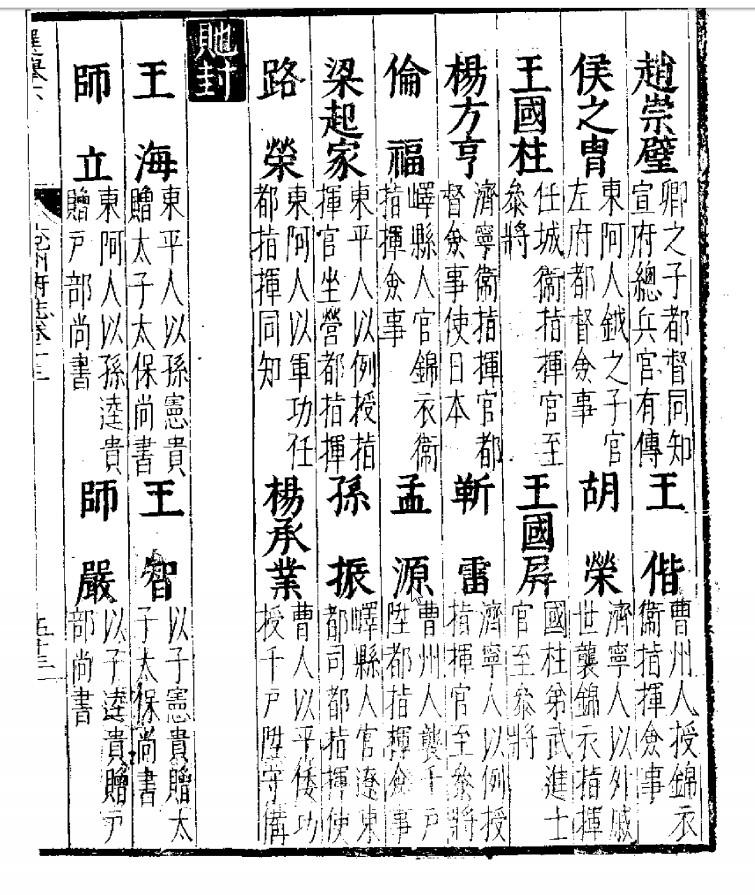 趙崇璧 卿之子都督同知宣府總兵官有傳
王偕 曹州人授錦衣衞指揮僉事
侯之胄 東阿人鉞之子官左府都督僉事
胡榮 濟寧人以外戚世襲錦衣指揮
王國柱 任城衞指揮官至叅將
王國屏 國柱弟武進士官至叅將
楊方亨 濟寧衞指揮官都督僉事使日本
靳雷 濟寧人以例授指揮官至叅將
倫福 嶧縣人官錦衣衞指揮僉事
孟源 曹州人襲千戶陞都指揮僉事
梁起家 東平人以例授指揮官坐營都指揮
孫振 嶧縣人官遼東都司都指揮使
路榮 東阿人以軍功任都指揮同知
楊承業 曹人以平倭功授千戶陞守備
貤封
王海 東平人以孫憲貴贈太子太保尚書
王智 以子憲貴贈太子太保尚書
師立 東阿人以孫逵貴贈戶部尚書
師嚴 以子逵貴贈戶部尚書
兖州府志卷